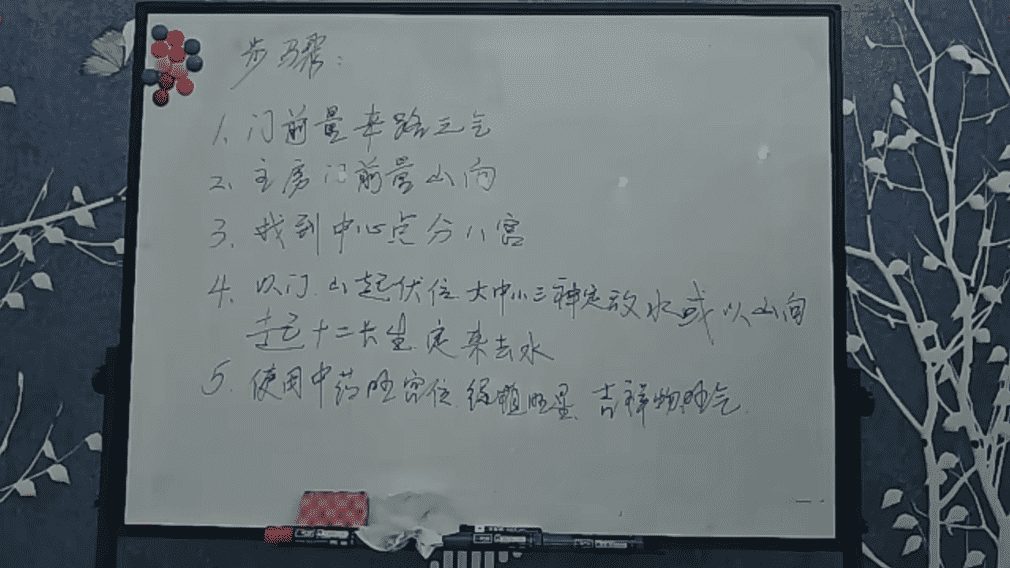 步骤：
1、门前量来路之气
2、主房门前量山向
3、找到中心点分八宫
4、以门、山起伏位大中小三神定放水或以山向
起十二长生定来去水
5、使用中药旺宫位、绿植旺星、吉祥物旺气